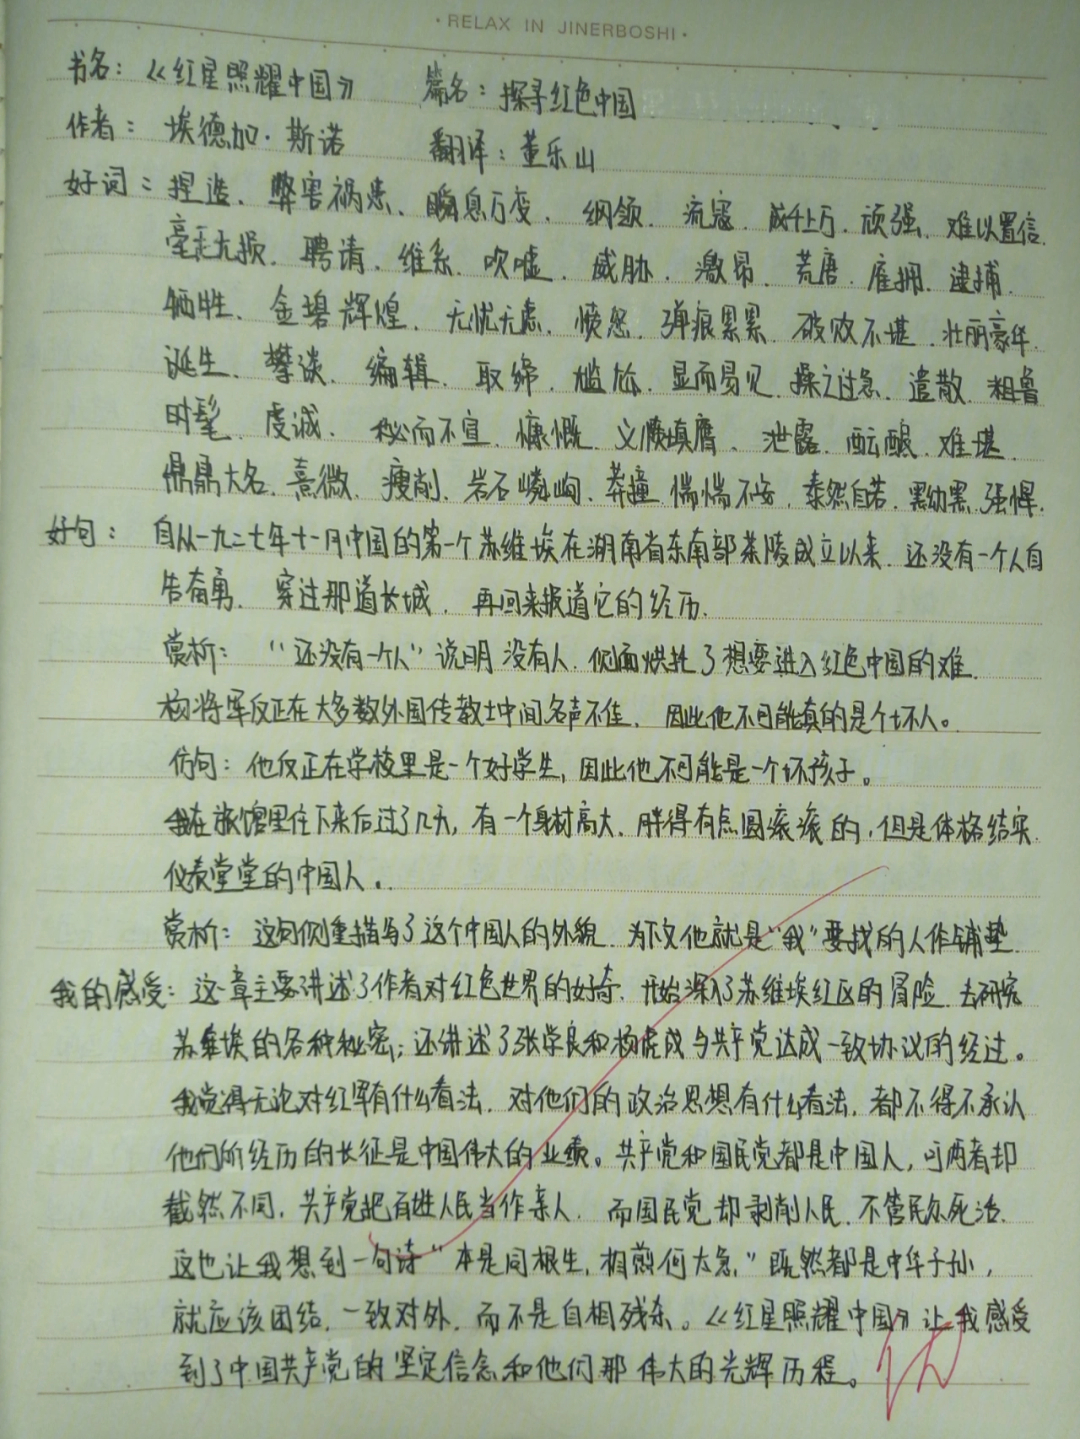 ·RELAX IN JINERBOSHI·
书名：《红星照耀中国》 篇名：探寻红色中国
作者：埃德加·斯诺 翻译：董乐山
好词：捏造、弊害祸患、瞬息万变、纲领、流寇、成千上万、顽强、难以置信、
毫无损、聘请、维系、吹嘘、威胁、激昂、荒唐、雇拥、逮捕、
牺牲、金碧辉煌、无忧无虑、愤怒、弹痕累累、破败不堪、壮丽豪华、
诞生、攀谈、编辑、取缔、尴尬、显而易见、操之过急、遣散、粗鲁
时髦、虔诚、秘而不宣、慷慨、义愤填膺、泄露、酝酿、难堪、
鼎鼎大名、熹微、瘦削、岩石嶙峋、莽撞、惴惴不安、泰然自若、黑黝黑、强悍、
好句：自从一九二七年十一月中国的第一个苏维埃在湖南省东南部茶陵成立以来，还没有一个人自
告奋勇，穿过那道长城，再回来报道它的经历。
赏析：“还没有一个人”说明没有人，侧面烘托了想要进入红色中国的难。
杨将军反正在大多数外国传教士中间名声不佳，因此他不可能真的是个坏人。
仿句：他反正在学校里是一个好学生，因此他不可能是一个坏孩子。
我在旅馆里住下来后过了几天，有一个身材高大、胖得有点圆滚滚的，但是体格结实、
仪表堂堂的中国人。
赏析：这句侧重描写了这个中国人的外貌，为下文他就是“我”要找的人作铺垫。
我的感受：这一章主要讲述了作者对红色世界的好奇，开始深入了苏维埃红区的冒险，去研究
苏维埃的各种秘密；还讲述了张学良和杨虎成与共产党达成一致协议的经过。
我觉得无论对红军有什么看法，对他们的政治思想有什么看法，都不得不承认
他们所经历的长征是中国伟大的业绩。共产党和国民党都是中国人，可两者却
截然不同，共产党把百姓人民当作亲人，而国民党却剥削人民，不管民众死活，
这也让我想到一句诗“本是同根生，相煎何太急，”既然都是中华子孙，
就应该团结，一致对外，而不是自相残杀。《红星照耀中国》让我感受
到了中国共产党的坚定信念和他们那伟大的光辉历程。